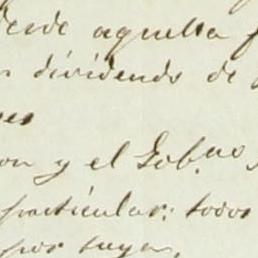 desde aquella f
dividendo de
on y el Gob.no
particular: todos
por suya,